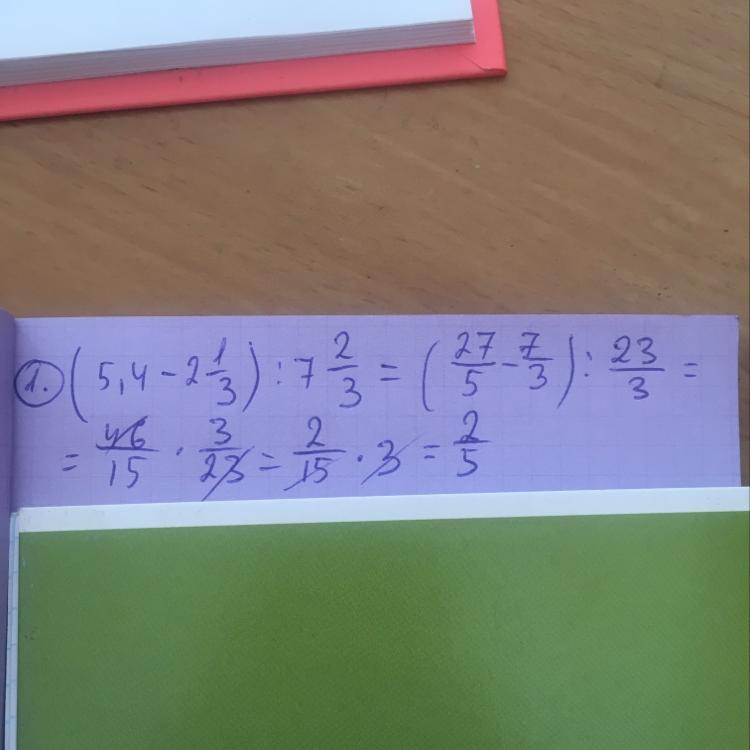 1. (5,4 - 2 1/3) : 7 2/3 = (27/5 - 7/3) : 23/3 =
= 46/15 · 3/23 = 2/15 · 3 = 2/5